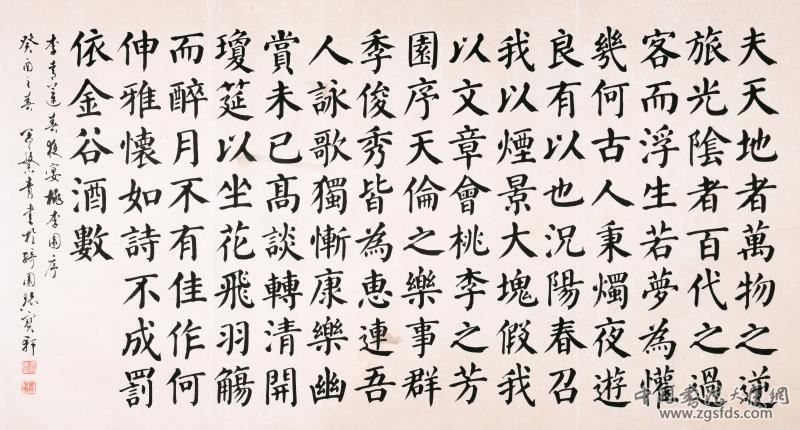 夫天地者萬物之逆
旅光陰者百代之過
客而浮生若夢為懽
幾何古人秉燭夜遊
良有以也況陽春召
我以煙景大塊假我
以文章會桃李之芳
園序天倫之樂事群
季俊秀皆為恵連吾
人詠歌獨慚康樂幽
賞未已髙談轉清開
瓊筵以坐花飛羽觴
而醉月不有佳作何
伸雅懷如詩不成罰
依金谷酒數
李青蓮春夜宴桃李園序
癸酉之春 青書於 園 寶軒
中国书法大师网
www.zgsfds.com